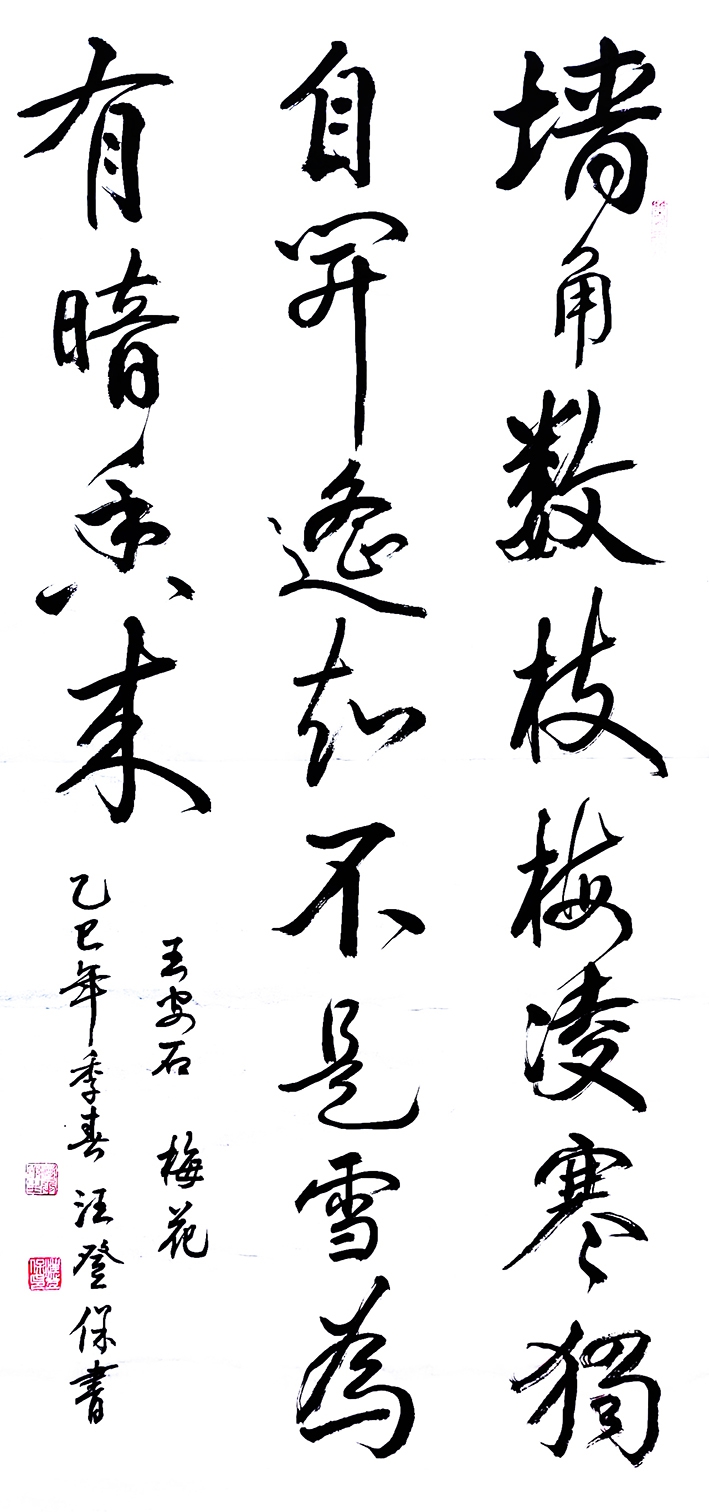 墙角数枝梅凌寒獨
自開遙知不是雪為
有暗香来
王安石 梅花
乙巳年季春汪登保書